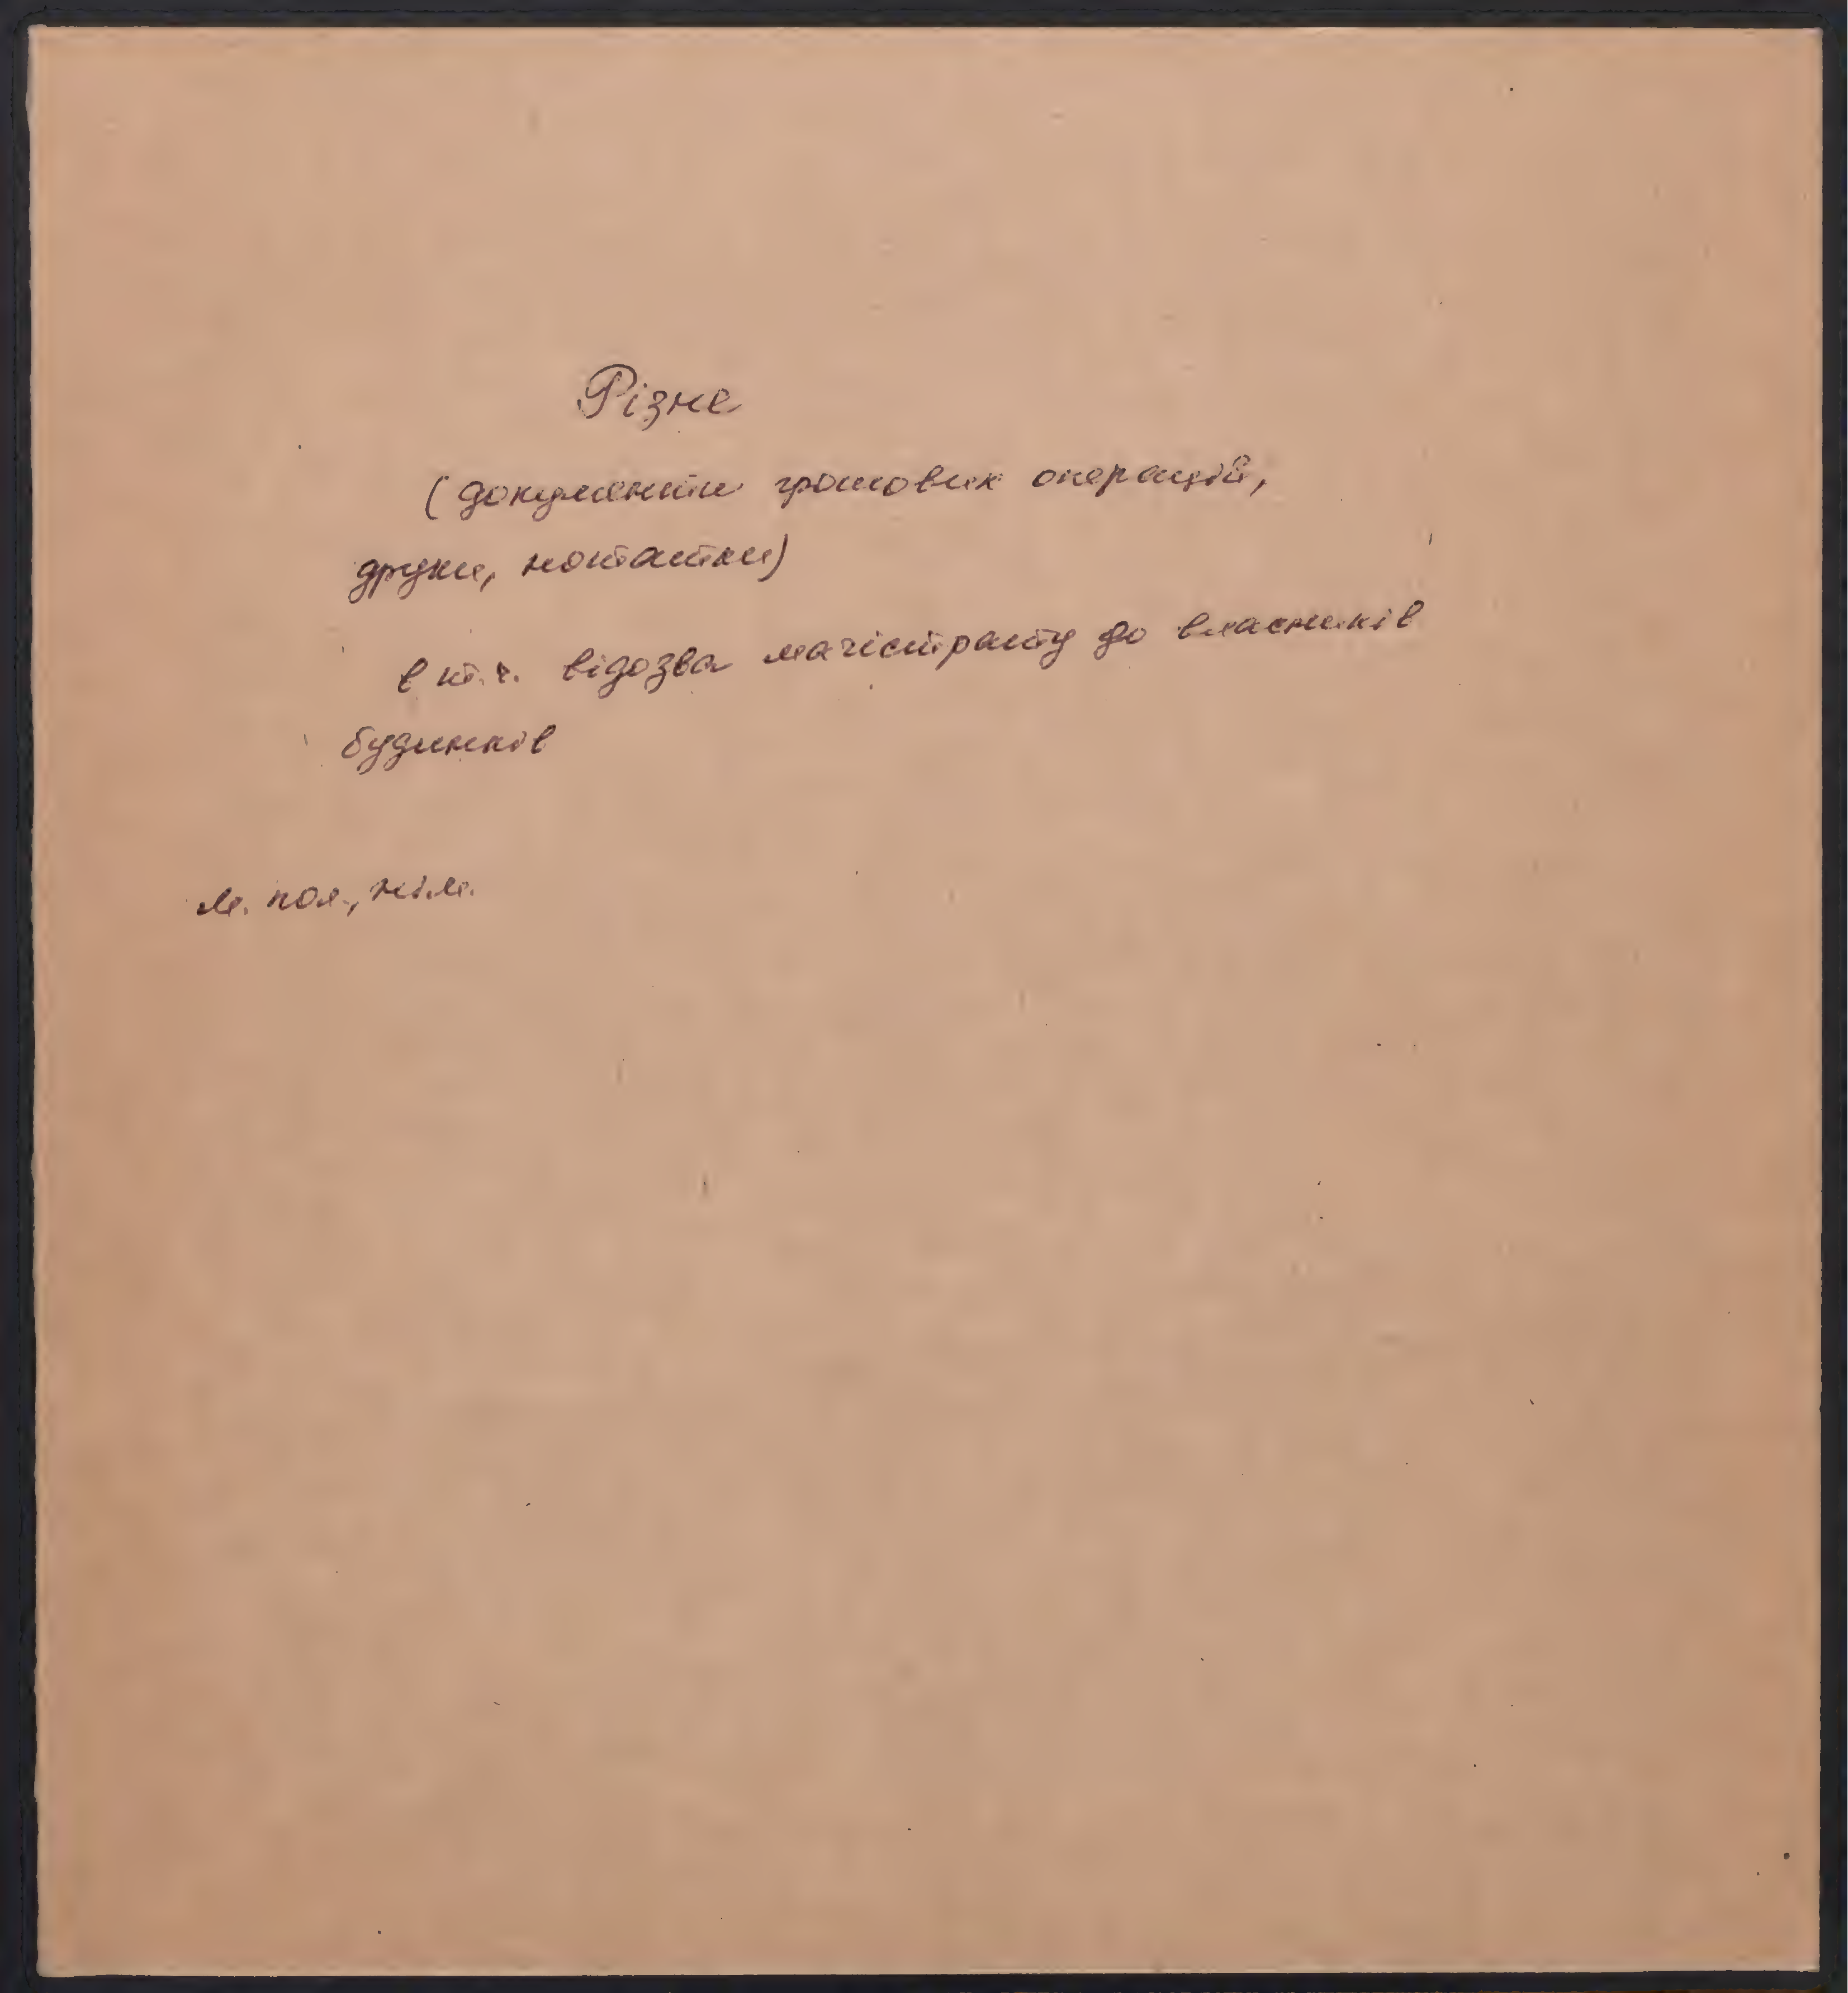 Різне
(документи грошових операцій,
друки, нотатки)
в т.ч. відозва магістрату до власників
будинків
м. пол., нім.